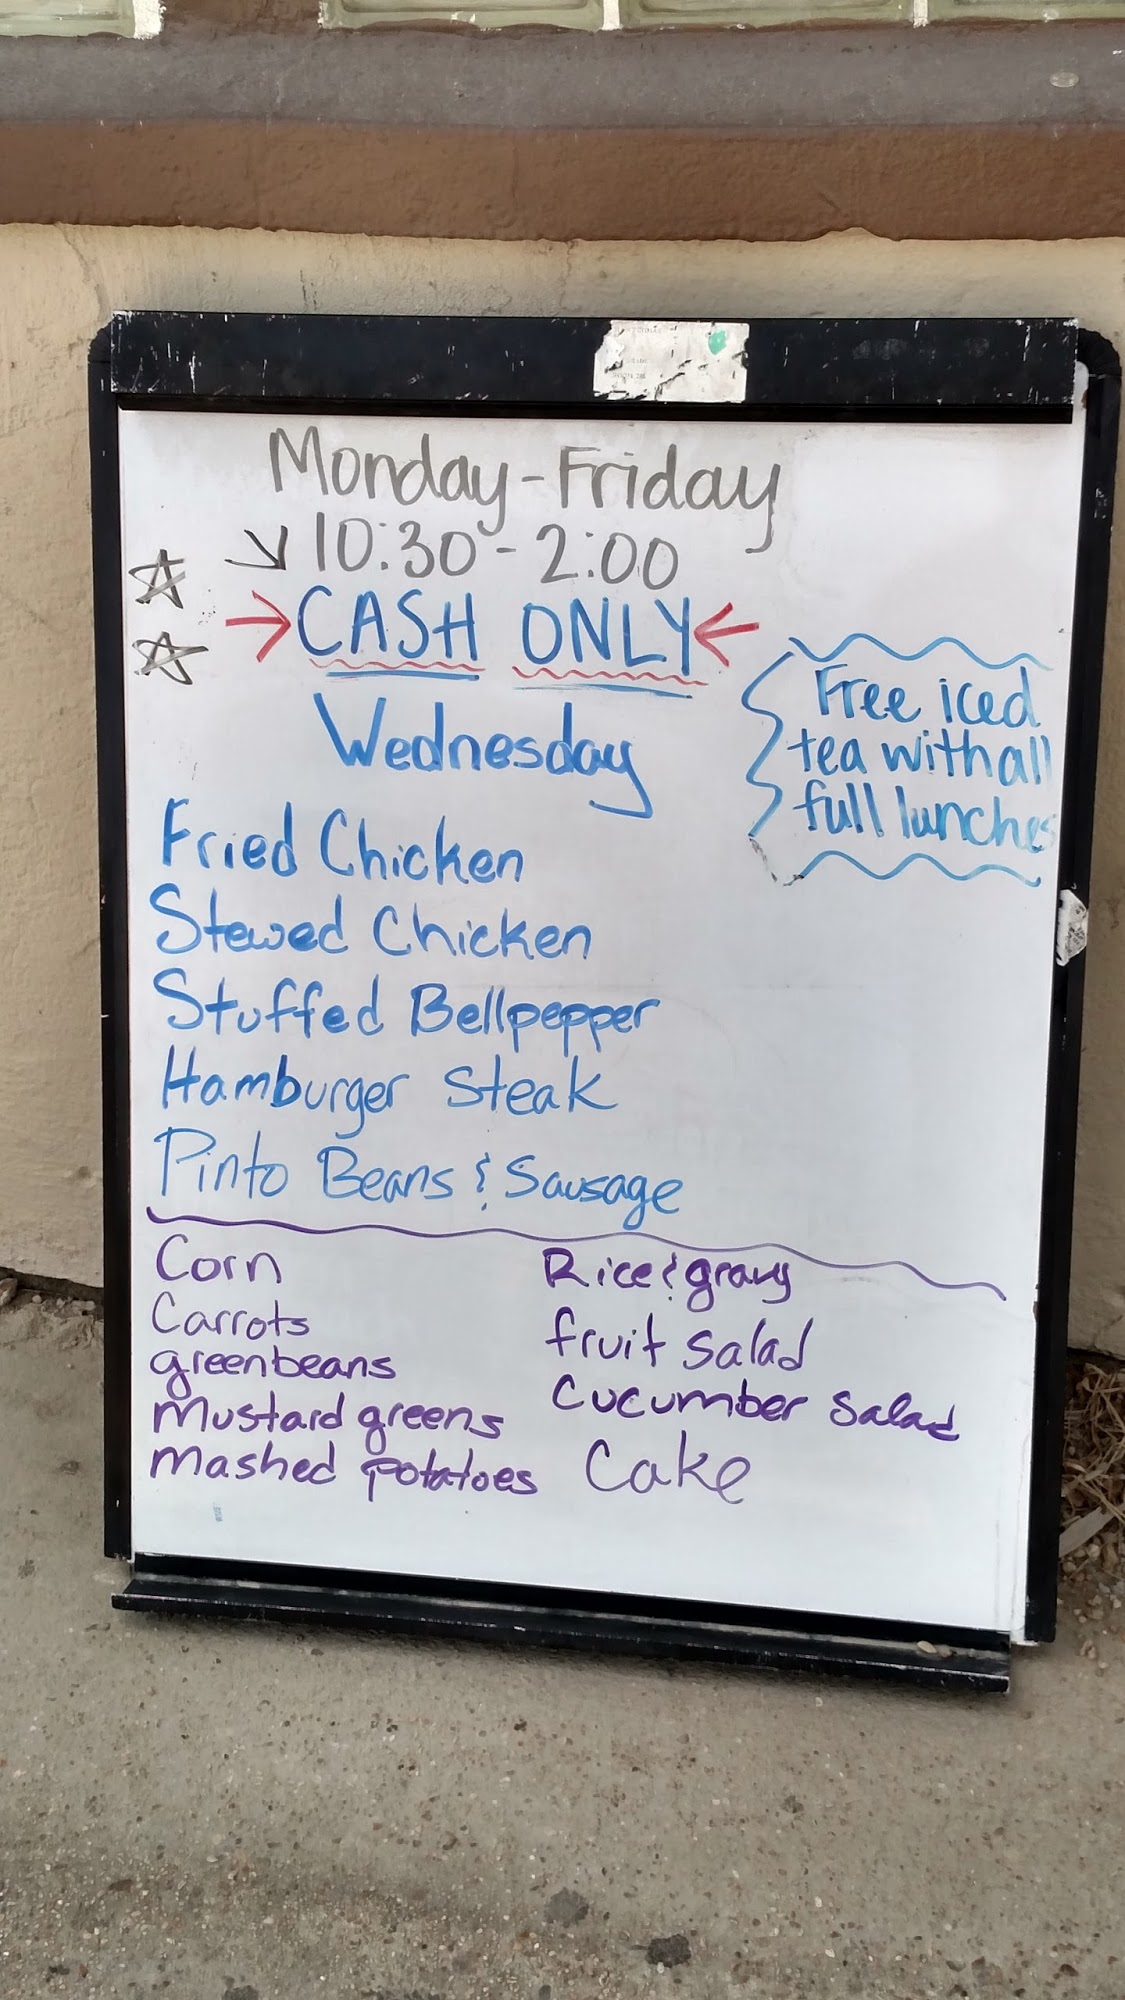 Monday-Friday
10:30-2:00
CASH ONLY
Wednesday
Free iced
tea with all
full lunches
Fried Chicken
Stewed Chicken
Stuffed Bellpepper
Hamburger Steak
Pinto Beans & Sausage
Corn
Carrots
greenbeans
Mustard greens
Mashed potatoes
Rice & gravy
fruit salad
Cucumber Salad
Cake